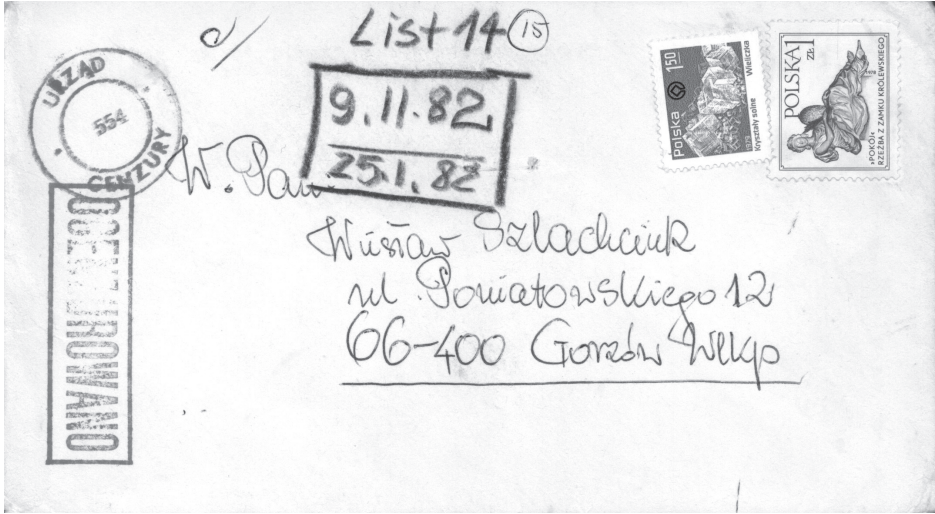 List 14 15
9.11.82
25.1.82
URZĄD
554
CENZURY
OCENZUROWANO
W. Pan
Wiesław Szlachciuk
ul. Poniatowskiego 12
66-400 Gorzów Wlkp
Polska 1,50
1979
Kryształy solne
Wieliczka
POLSKA 1 ZŁ
»POKÓJ«
RZEŹBA Z ZAMKU KRÓLEWSKIEGO